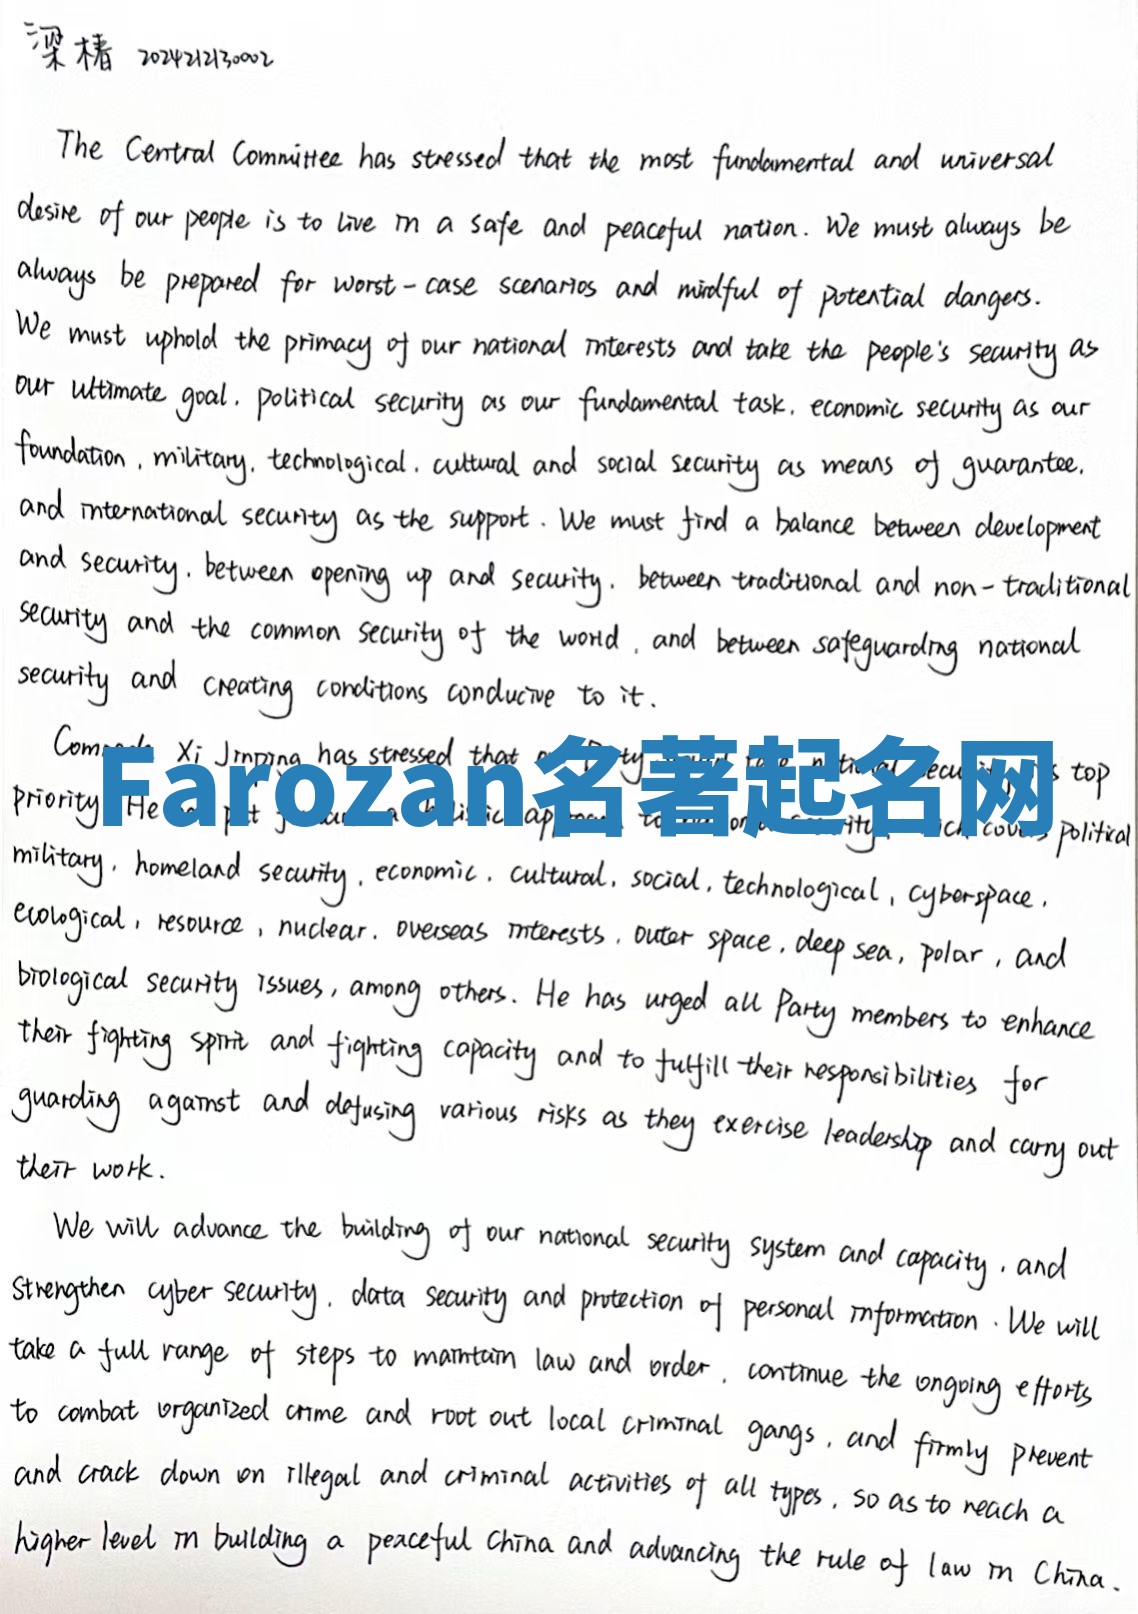 梁椿 2024212130002
The Central Committee has stressed that the most fundamental and universal
desire of our people is to live in a safe and peaceful nation. We must always be
always be prepared for worst-case scenarios and mindful of potential dangers.
We must uphold the primacy of our national interests and take the people's security as
our ultimate goal, political security as our fundamental task, economic security as our
foundation, military, technological, cultural and social security as means of guarantee,
and international security as the support. We must find a balance between development
and security, between opening up and security, between traditional and non-traditional
security and the common security of the world, and between safeguarding national
security and creating conditions conducive to it.
Xi Jinping has stressed that top
priority He political
Farozan名著起名网
military, homeland security, economic, cultural, social, technological, cyberspace,
ecological, resource, nuclear, overseas interests, outer space, deep sea, polar, and
biological security issues, among others. He has urged all Party members to enhance
their fighting spirit and fighting capacity and to fulfill their responsibilities for
guarding against and defusing various risks as they exercise leadership and carry out
their work.
We will advance the building of our national security system and capacity, and
strengthen cyber security, data security and protection of personal information. We will
take a full range of steps to maintain law and order, continue the ongoing efforts
to combat organized crime and root out local criminal gangs, and firmly prevent
and crack down on illegal and criminal activities of all types, so as to reach a
higher level in building a peaceful China and advancing the rule of law in China.